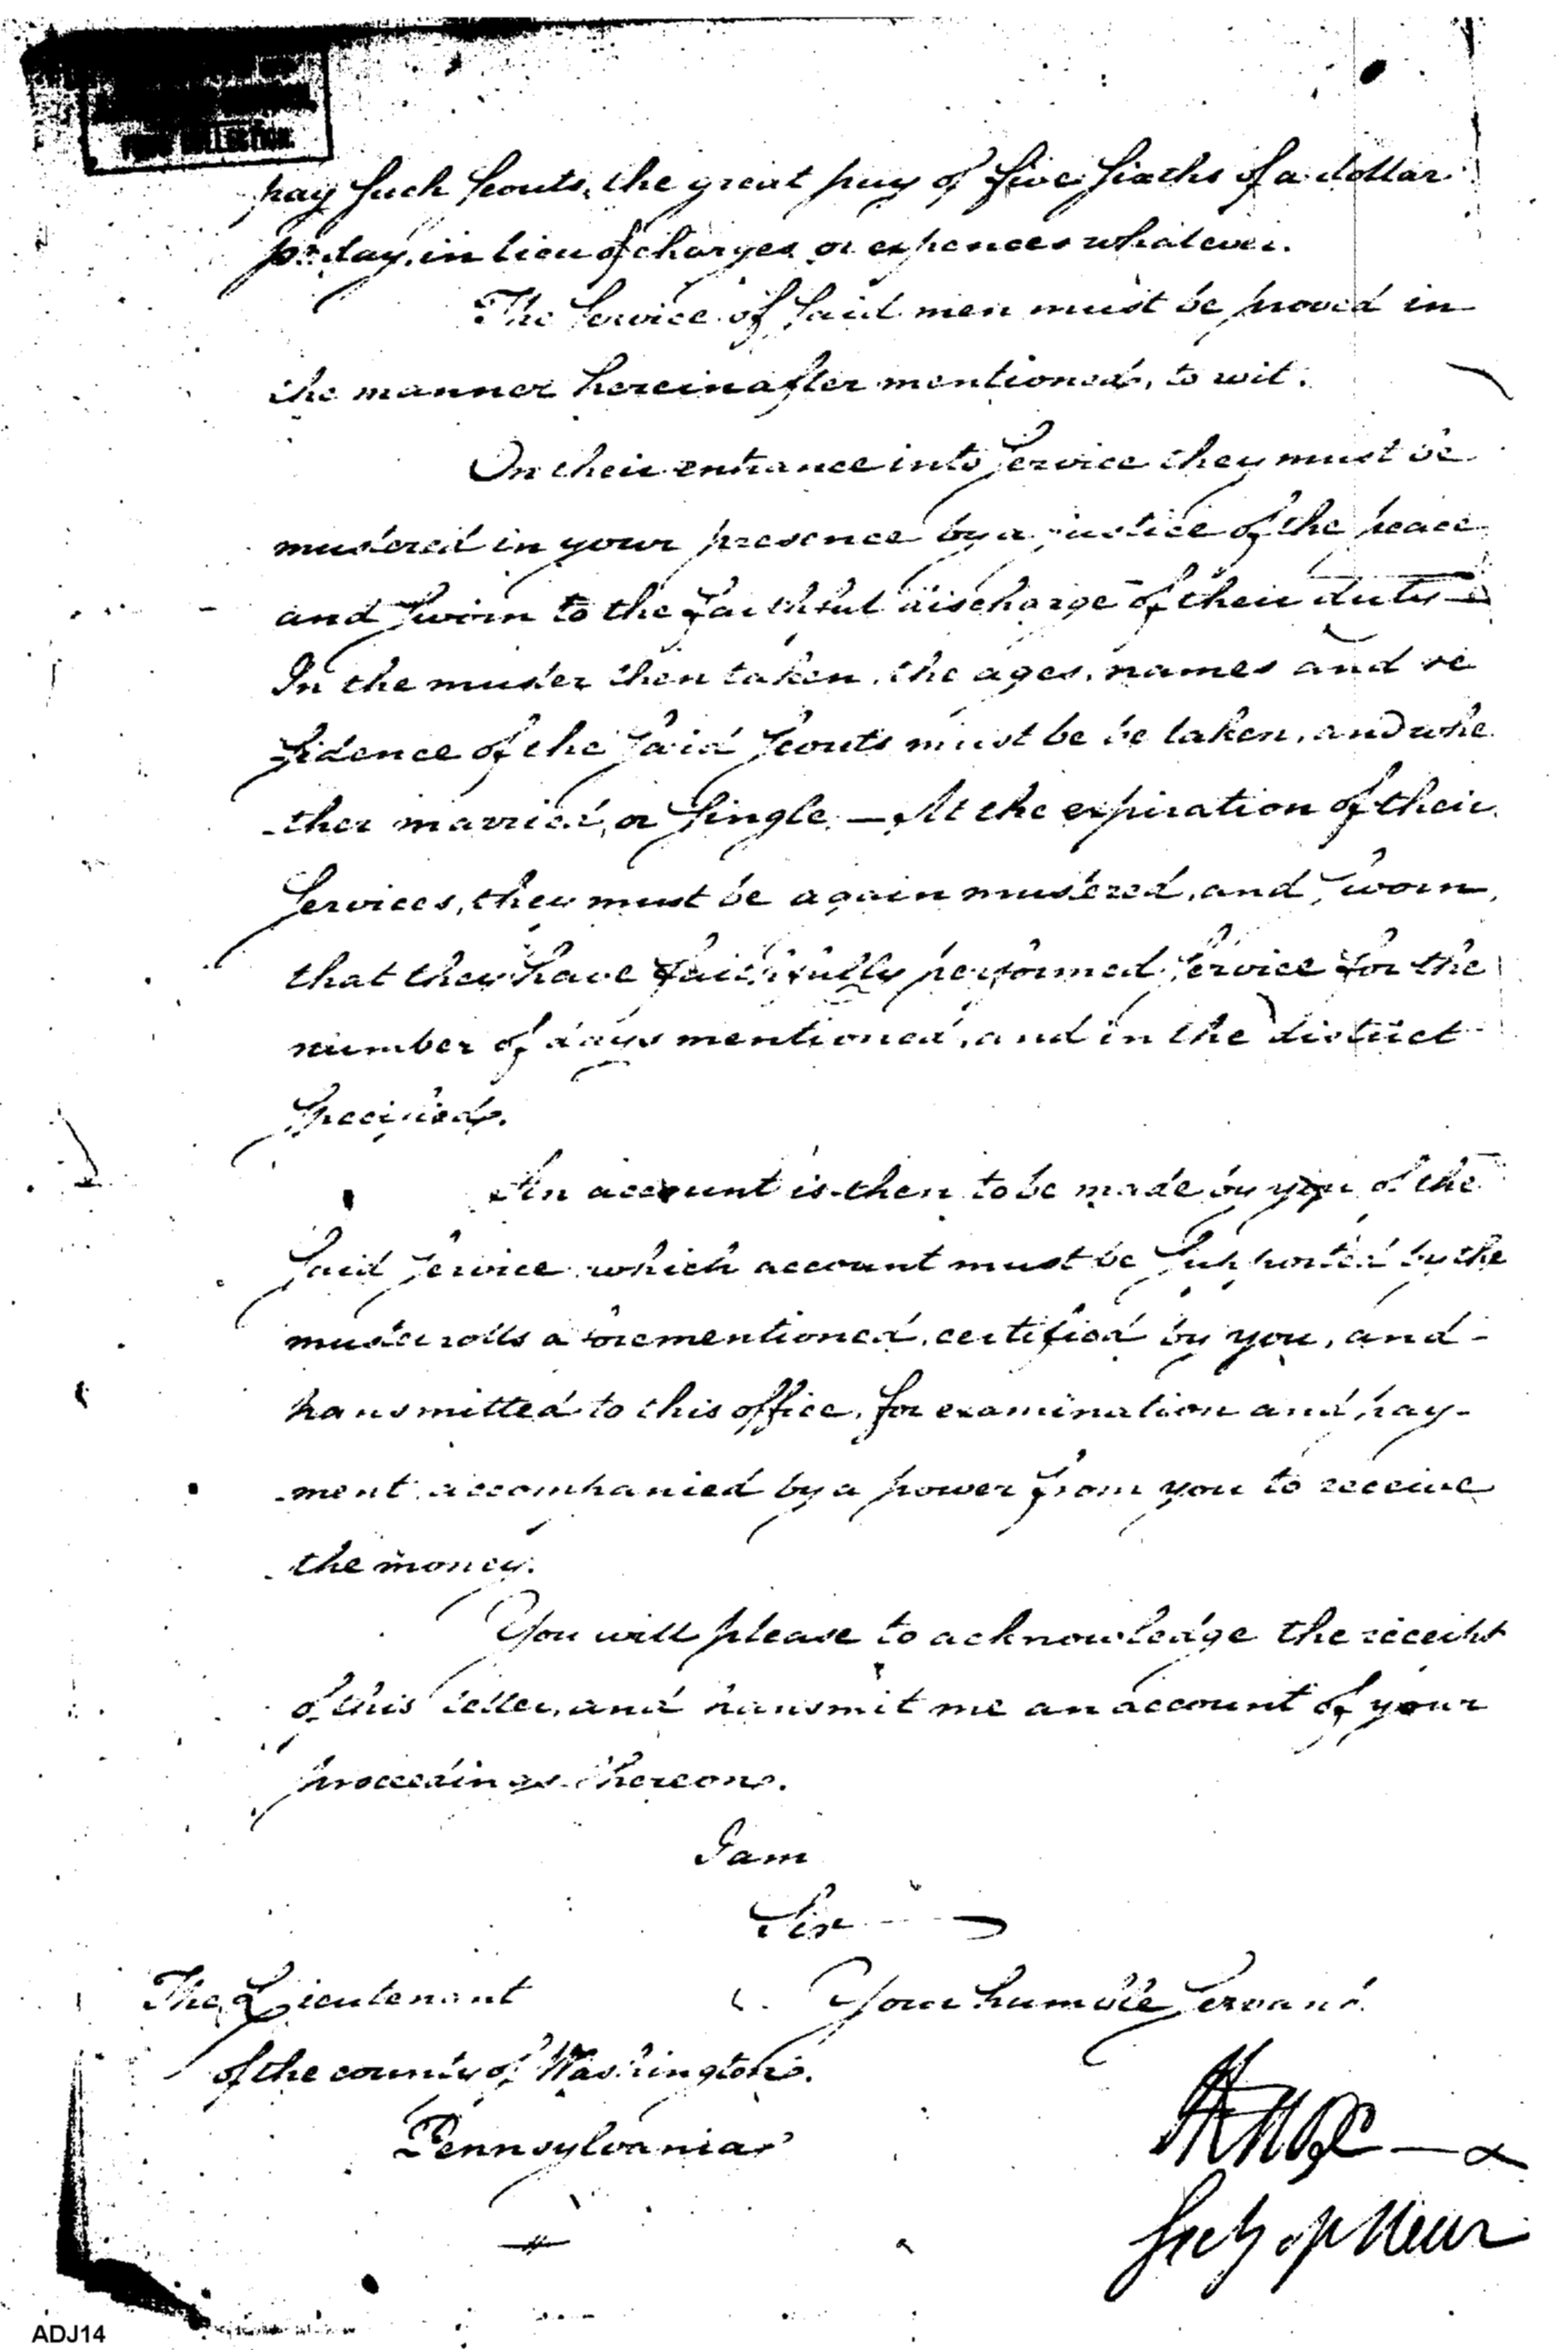 COLLECTION.
pay such scouts, the great pay of five sixths of a dollar
pr. day, in lieu of charges or expences whatever.
The service of said men must be proved in
the manner hereinafter mentioned, to wit.
On their entrance into service they must be
mustered in your presence by a justice of the peace
and sworn to the faithful discharge of their duty —
In the muster then taken, the ages, names and re
sidence of the said scouts must be be taken, and whe
-ther married, or single. — At the expiration of their
services, they must be again mustered, and sworn,
that they have faithfully performed service for the
number of days mentioned, and in the district
specified.
An account is then to be made by you of the
said service which account must be supported by the
muster rolls aforementioned, certified by you, and -
transmitted to this office, for examination and pay-
-ment accompanied by a power from you to receive
the money.
You will please to acknowledge the receipt
of this letter, and transmit me an account of your
proceedings thereon.
I am
Sir
The Lieutenant
Your humble servant
of the county of Washington.
Pennsylvania
HKnox
Secy of War
ADJ14